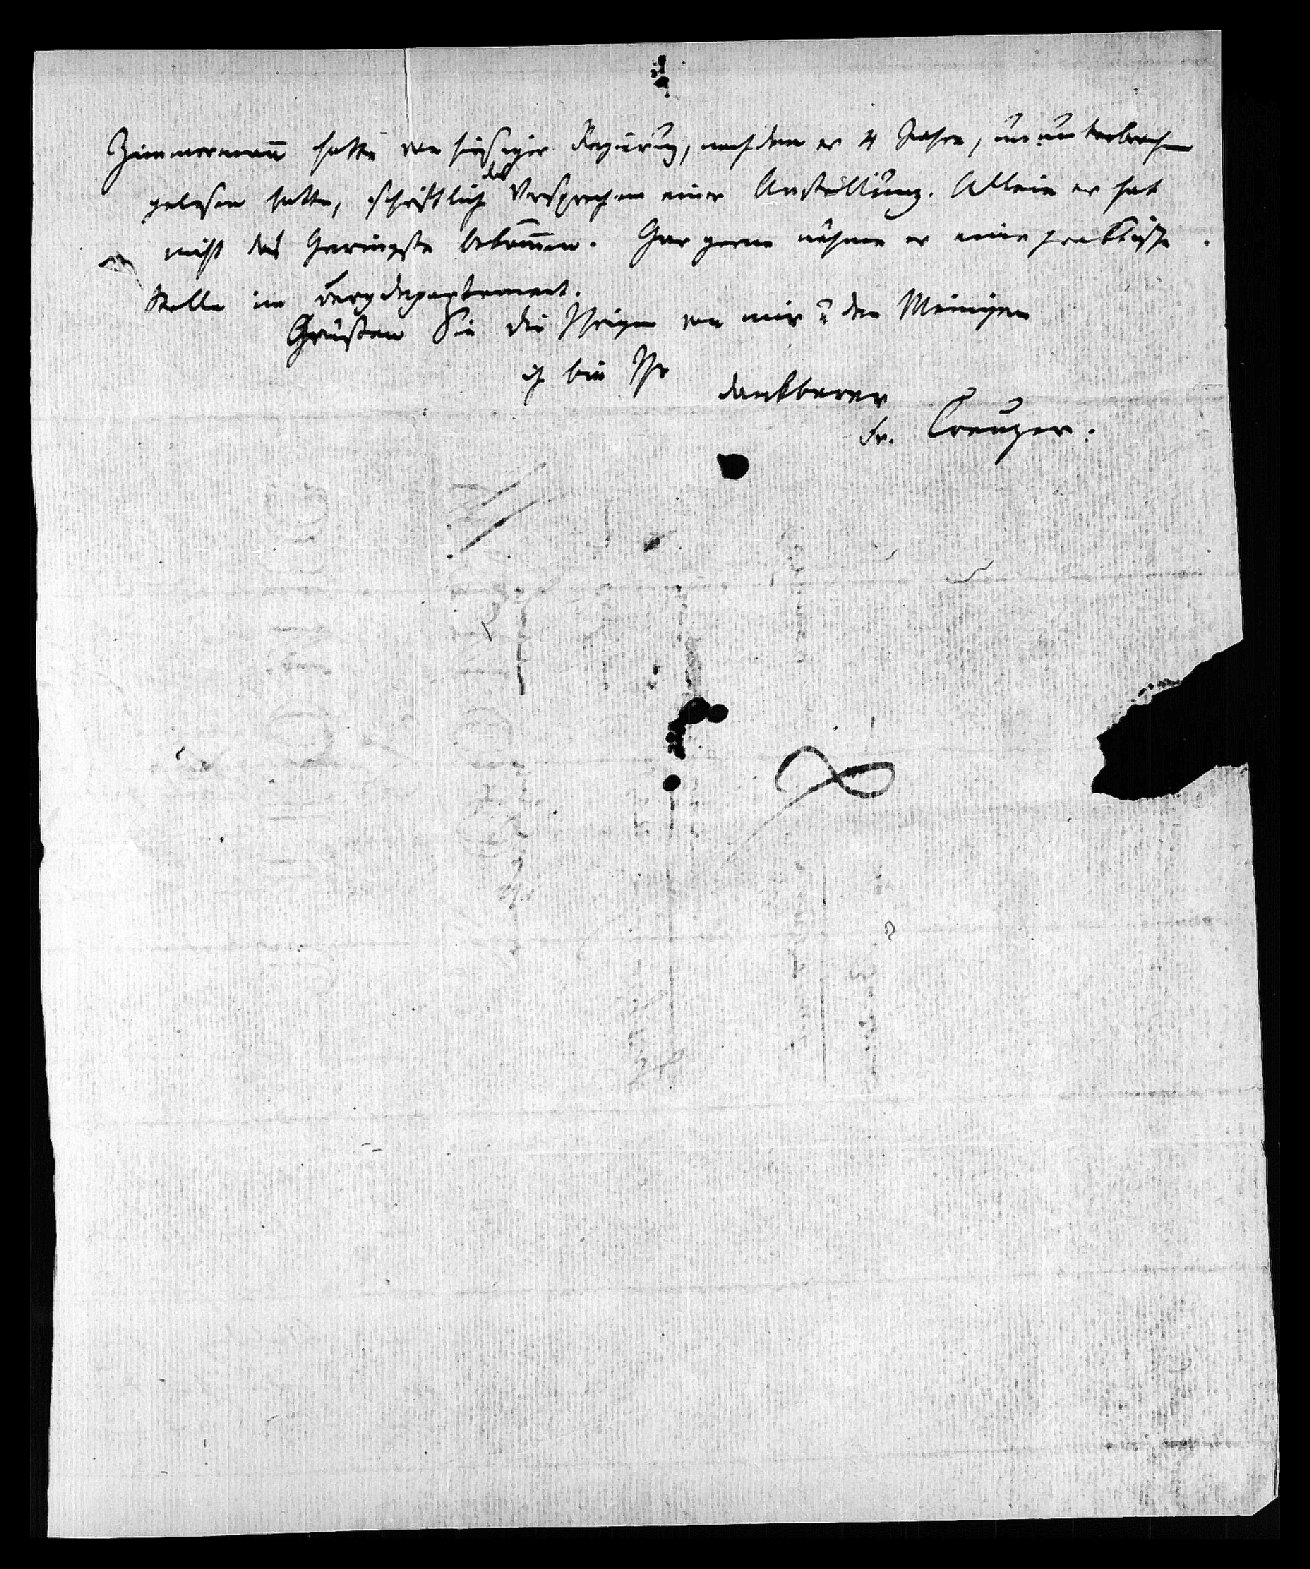 Zimmermann hatte von hiesiger Regirung, nachdem er 4 Jahre, ununterbrochen
gelesen hatte, schriftlich das Versprechen einer Anstellung. Allein er hat
nicht das Geringste bekommen. Gar gerne nähme er eine praktische
Stelle im Bergdepartement.
Grüßen Sie die Ihrigen von mir u den Meinigen
ich bin Ihr
dankbarer
Fr. Creuzer.